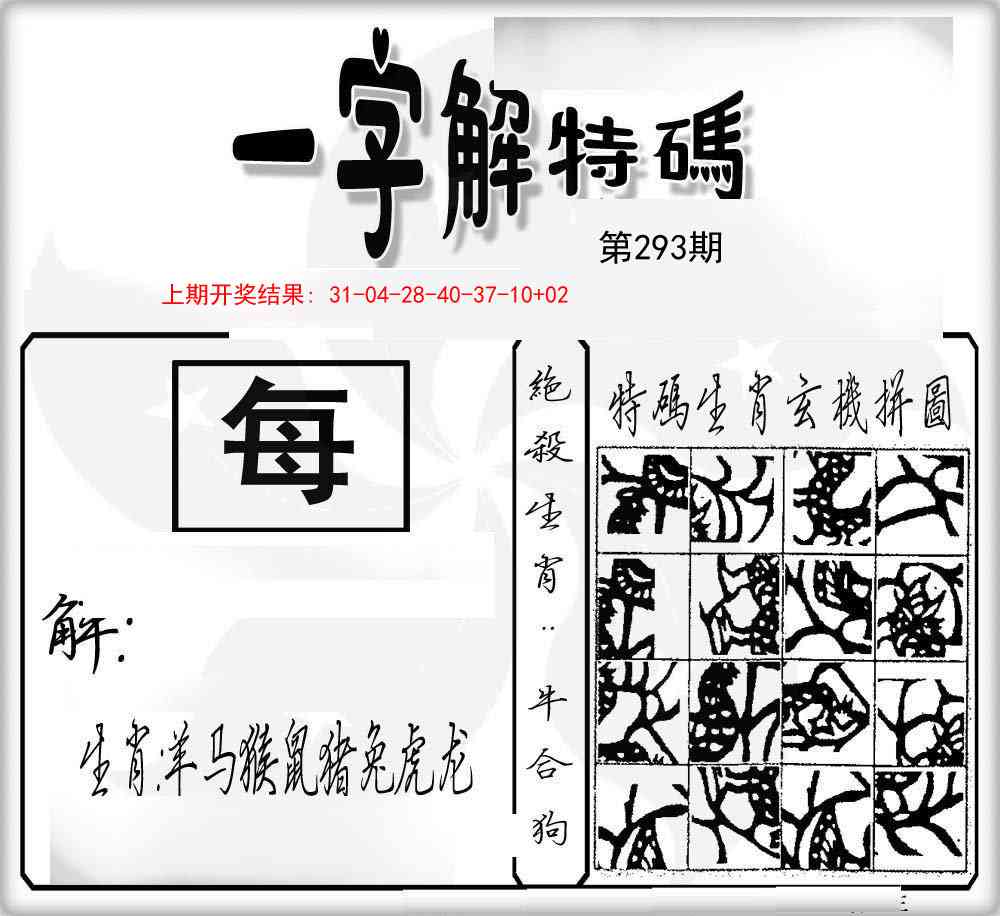 一字解特碼
第293期
上期开奖结果：31-04-28-40-37-10+02
每
解：
生肖:羊马猴鼠猪兔虎龙
絶殺生肖：牛合狗
特碼生肖玄機拼圖